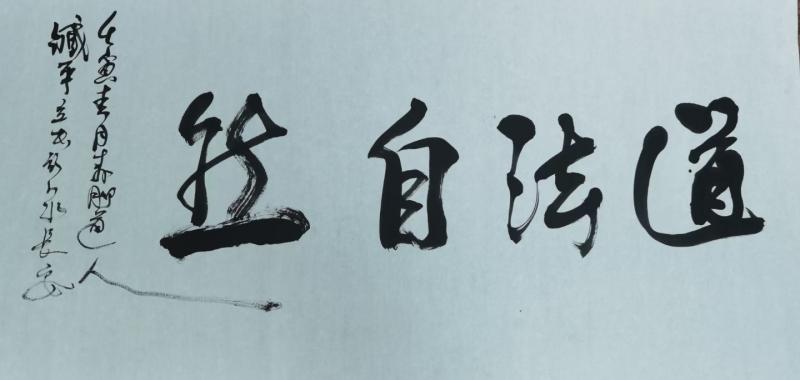 道法自然
壬寅春月赤脚道人
平立书于长安